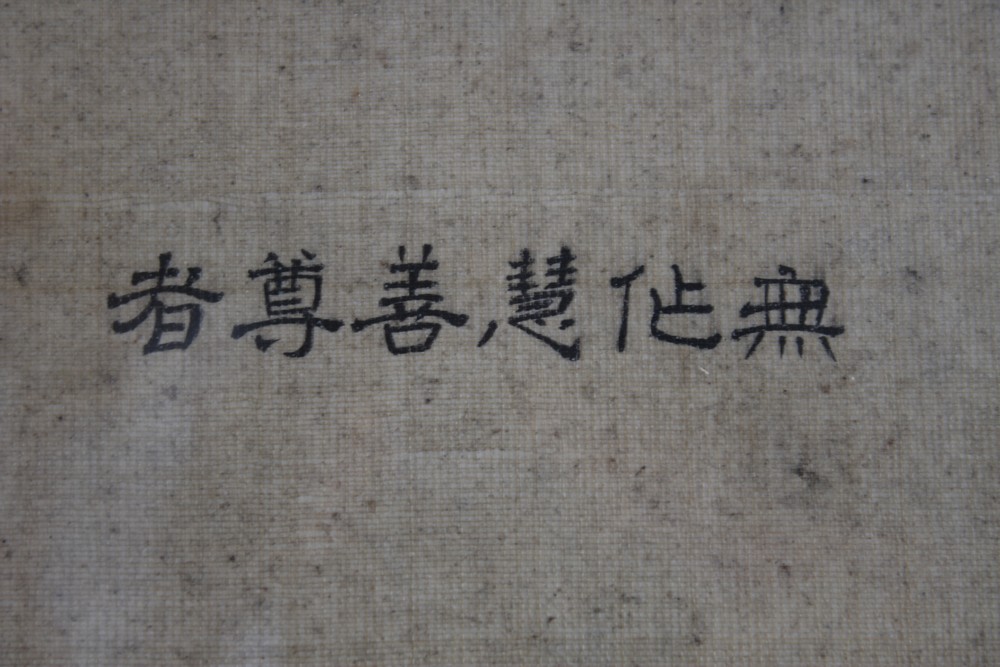 無作慧善尊者